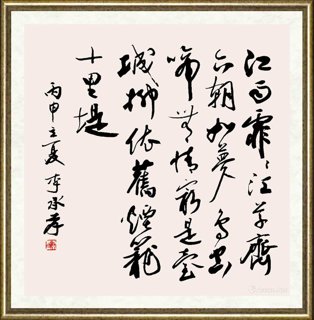 江雨霏〻江草齊
六朝如夢鳥空
啼無情最是臺
城柳依舊煙籠
十里堤
丙申立夏李承